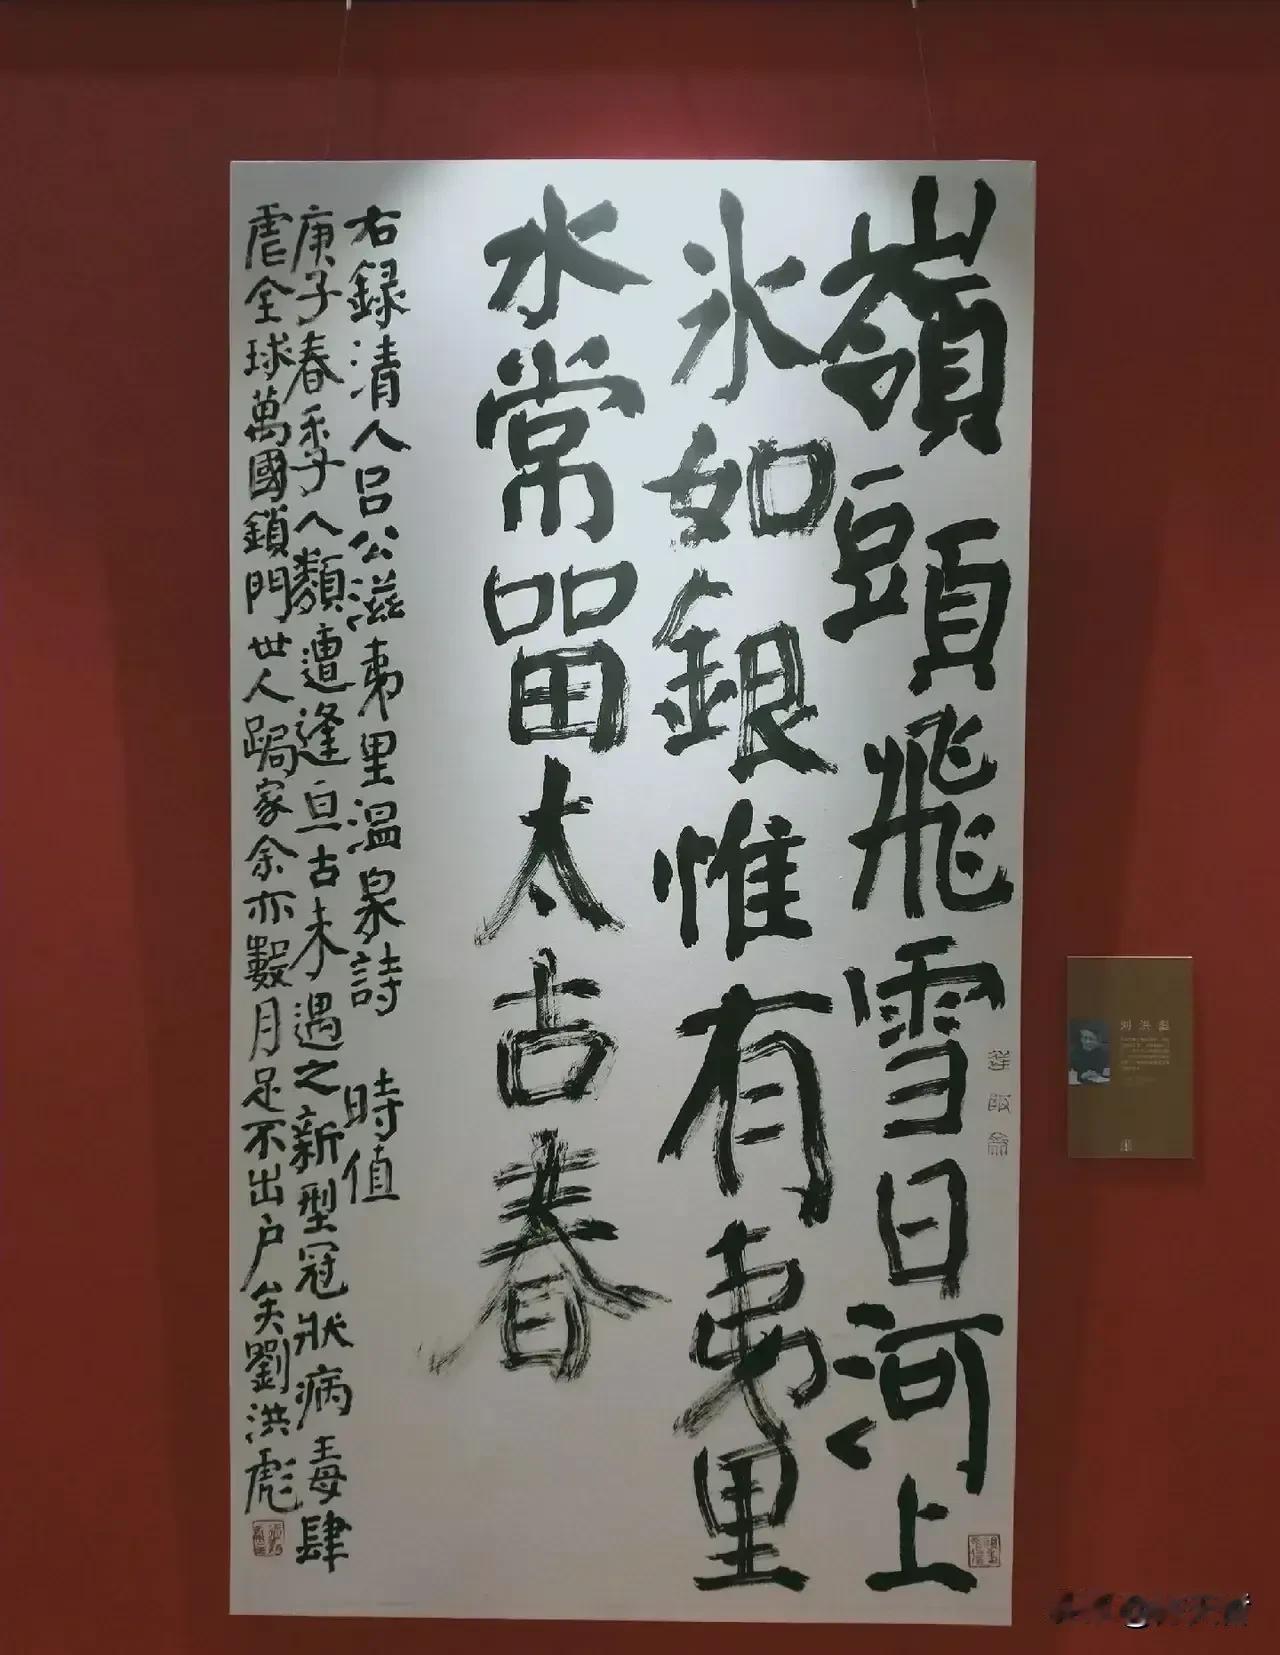 嶺頭飛雪日河上
氷如銀惟有夷里
水常留太古春
右録清人呂公滋夷里温泉詩 時值
庚子春季人類遭逢亘古未遇之新型冠狀病毒肆
虐全球萬國鎖門世人跼家余亦數月足不出户矣劉洪彪
刘洪彪